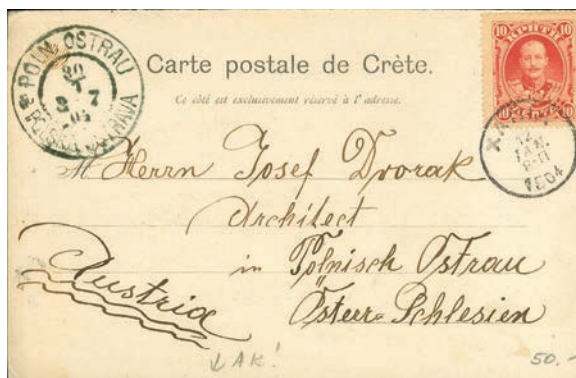 POLN. OSTRAU
POLSKÁ OSTRAVA
Carte postale de Crète.
Ce côté est exclusivement réservé à l'adresse.
ΚΡΗΤΗ
10 10
10 10
ΙΑΝ.
1904
Herrn Josef Dvorak
Architect
in Polnisch Ostrau
Austria
Österr. Schlesien
AK!
50.-